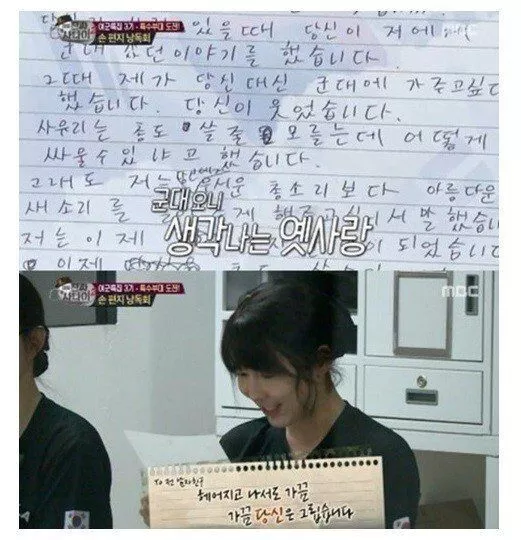 여군특집 3기 - 특수부대 도전!
손 편지 낭독회
MBC
있을때 당신이 저에게
군대 이야기를 했습니다.
그때 제가 당신 대신 군대에 가주고싶다
했습니다. 당신이 웃었습니다.
사유리는 총도 쏠 줄 모르는데 어떻게
싸울수 있냐고 했습니다.
그래도 저는 총소리보다 아름다운
새 소리를 말했습니
저는 이제 되었습니다
이제
군대 오니
생각나는 옛사랑
진짜 사나이
여군특집 3기 - 특수부대 도전!
손 편지 낭독회
MBC
To 전 남자친구
헤어지고 나서도 가끔
가끔 당신은 그립습니다